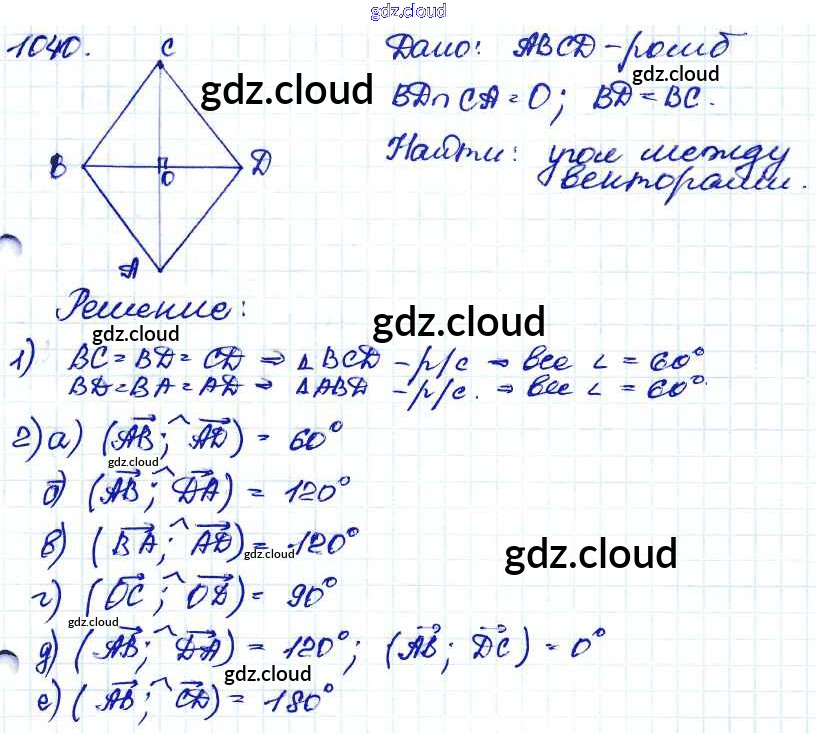 gdz.cloud
1040.
C
B
D
O
A
gdz.cloud
Дано: ABCD - ромб
gdz.cloud
BD∩CA = O; BD = BC.
Найти: угол между
векторами.
Решение:
gdz.cloud
gdz.cloud
1) BC = BD = CD ⇒ △BCD - р/с ⇒ все ∠ = 60°
BD = BA = AD ⇒ △ABD - р/с. ⇒ все ∠ = 60°.
2) а) (AB; ^ AD) = 60°
gdz.cloud
б) (AB; ^ DA) = 120°
в) (BA; ^ AD) = 120°
gdz.cloud
gdz.cloud
г) (OC; ^ OD) = 90°
gdz.cloud
д) (AB; ^ DA) = 120°; (AB; DC) = 0°
gdz.cloud
е) (AB; ^ CD) = 180°